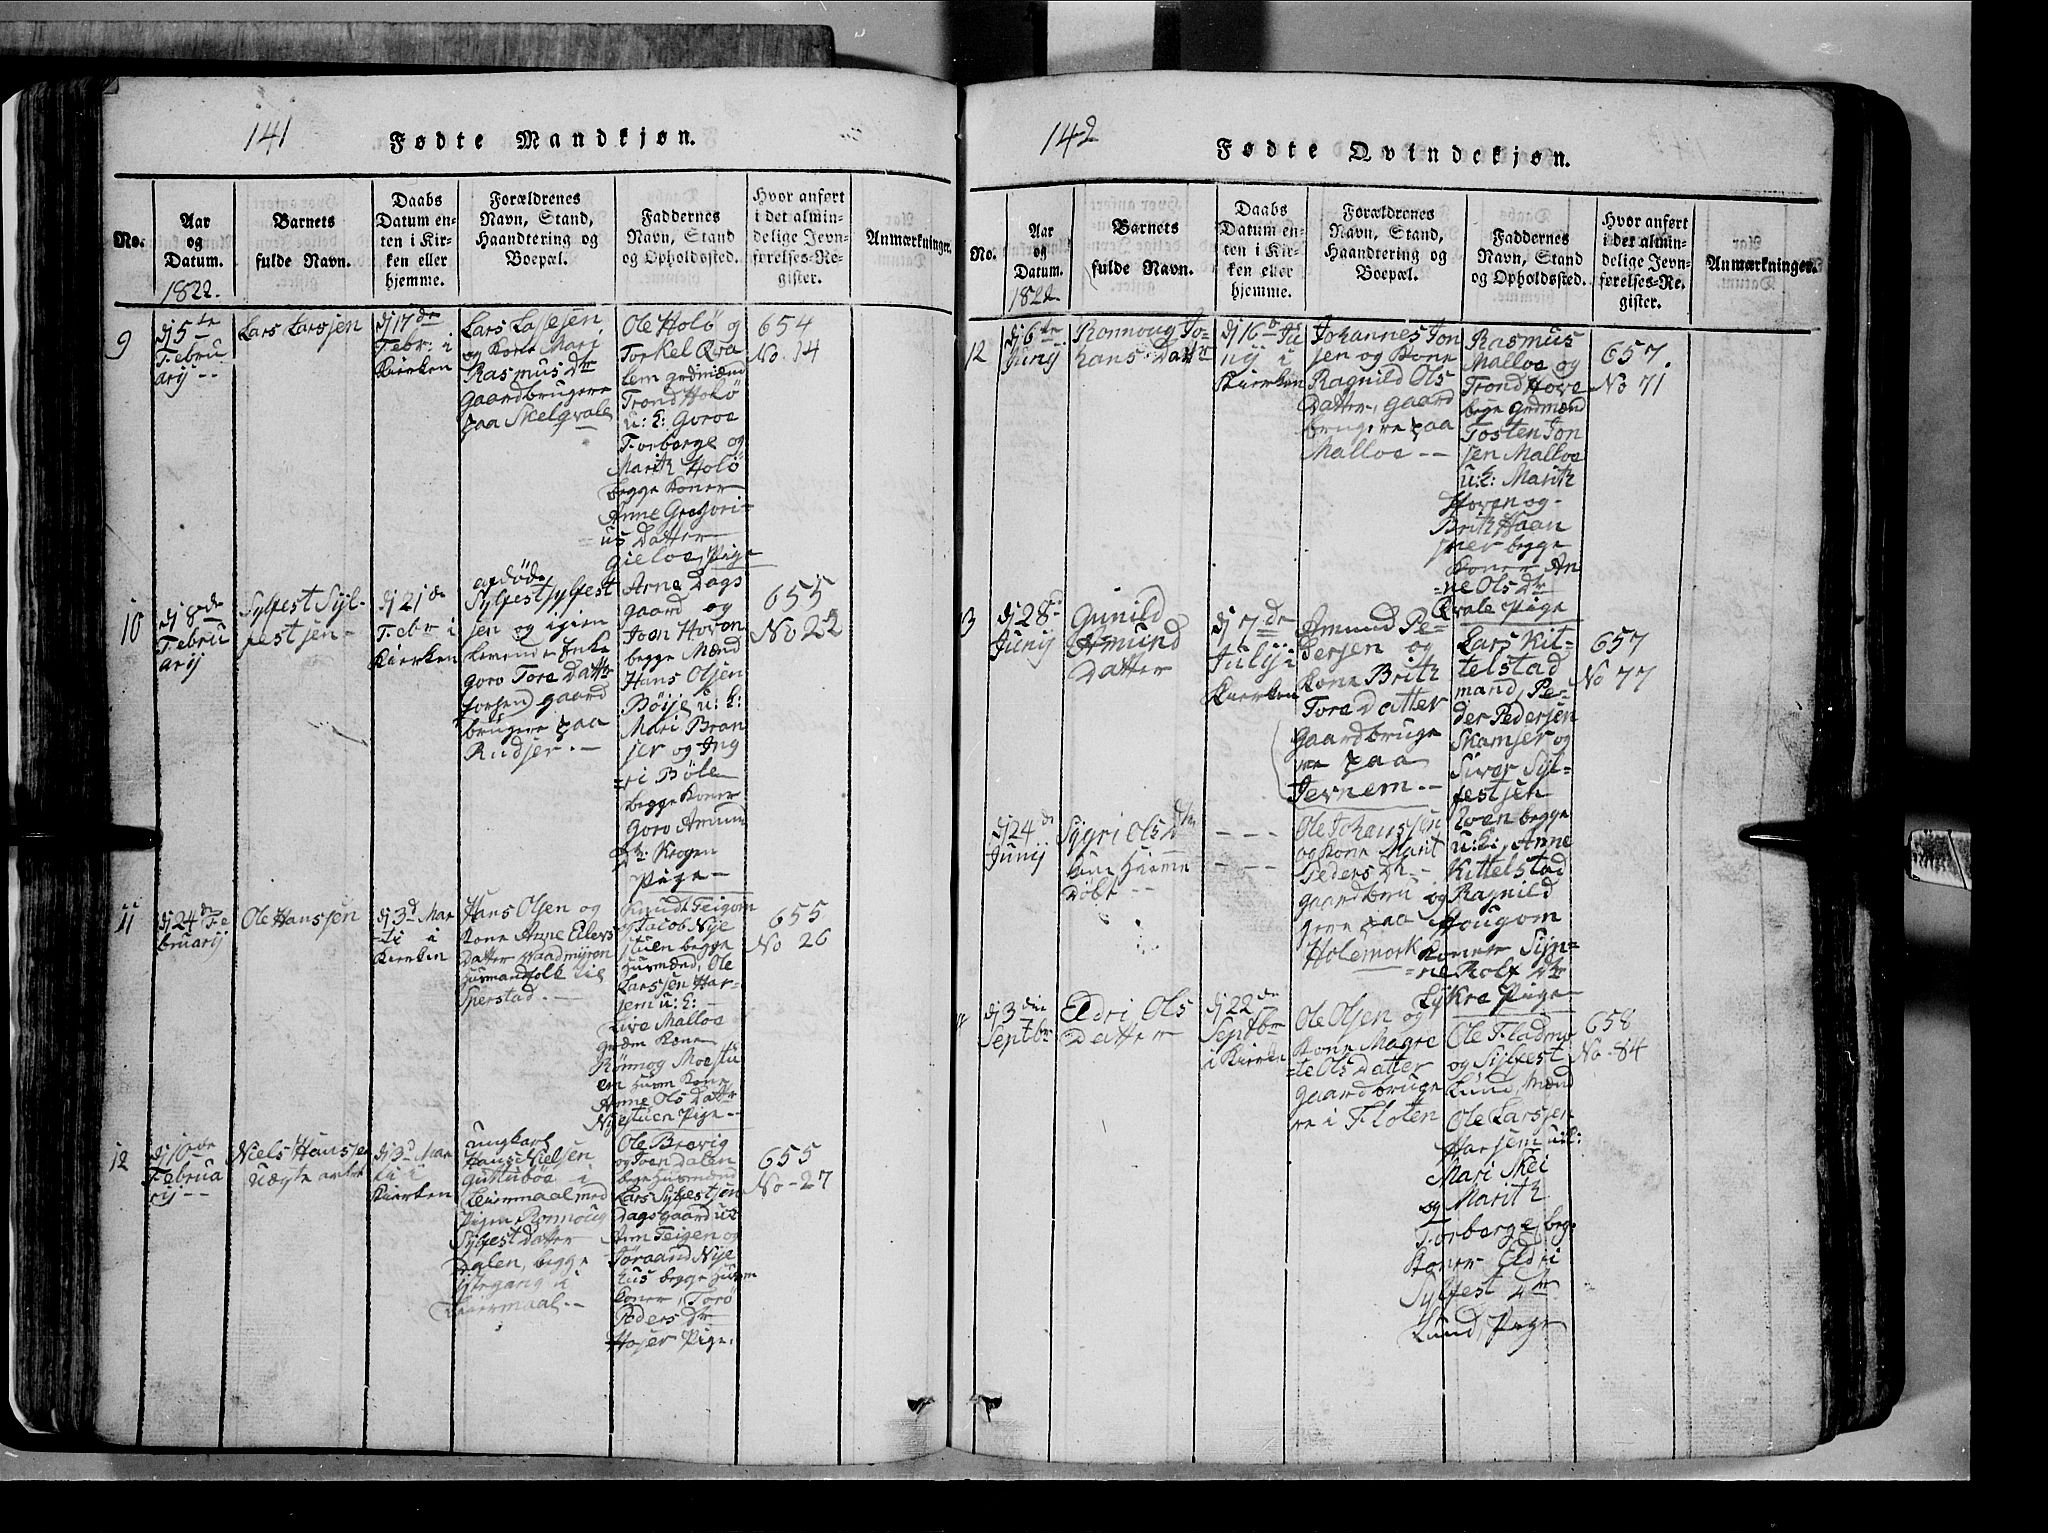 141
Fødte Mandkjøn.
No.
Aar
og
Datum.
1822.
Barnets
fulde Navn.
Daabs
Datum en-
ten i Kir-
ken eller
hjemme.
Forældrenes
Navn, Stand,
Haandtering og
Boepæl.
Faddernes
Navn, Stand
og Opholdssted.
Hvor anført
i det almin-
delige Jevn-
førelses-Re-
gister.
Anmærkninger.
9
dj 5te
Febru
arij --
Lars Larssen
dj 17de
Febr: i
Kierken
Lars Lassesen
og Kone Mari
Rasmus Dtr
gaardbrugere
paa Skelqvale
Ole Holö og
Torkel Qva
lem grdmænd
Trond Holö
u: k: Goroe
Torberge og
Marith Holö
begge Koner
Anne Gregori-
us Datter
Gieloe, Pige
654
No. 14
10
dj 8de
Febru
arij
Sylfest Syl-
festsen -
dj 21de
Febr i
Kierken
afdöde
Sylfest Sylfest
sen og igien
levende Enke
Goro Tore Datter
gaard
brugere paa
Rudsjer. -
Arne Dags
gaard og
Joen Hoven
begge Mænd
Hans Olsen
Böije u: k:
Mari Bran
sjer og Ing
=ri Böle
begge Koner
Goro Amund
Dtr: Krogen
Pige -
655
No 22
11
dj 24de Fe
bruarij
Ole Hanssen
dj 3d Mar
tij i
Kierken
Hans Olsen og
Kone Anne Eilers
Datter Vaadmyren
Husmandfolk til
Sperstad. -
Knud Teigen
og Jacob Nye
stuen begge
Husmænd, Ole
Larssen Har-
sem u: k: -
Live Malloe
Kone
Rönnog Moestu
en Husm Kone
Anne Ols Datter
Nyestuen Pige -
655
No 26
12
dj 10de
Februa
rij --
Niels Hanssen
uægte
dj 3d Mar
tij i
Kierken
ungkarl
Hans Nielsen
i
Leiermaal med
Pigen Ronnoug
Sylfest Datter
Dalen, begge
i
Leiermaal --
Ole Brevig
og Iver Dalen
begge Husmænd
Lars Sylfestsen
Dagsgaard uk
Ann Teigen og
Töraand Nye
hus begge Husm
Koner, Torö
Peders Dtr
Hojer Pige.
655
No - 27
142
Fødte Qvindekjøn.
No.
Aar
og
Datum.
1822
Barnets
fulde Navn.
Daabs
Datum en-
ten i Kir-
ken eller
hjemme.
Forældrenes
Navn, Stand,
Haandtering og
Boepæl.
Faddernes
Navn, Stand
og Opholdssted.
Hvor anført
i det almin-
delige Jevn-
førelses-Re-
gister.
Anmærkninger.
12
dj 6te
Junij
Ronnoug Jo-
hans Datter
dj 16de Ju
nij i
Kierken
Johannes Jon
sen og Kone
Ragnild Ols
Datter, gaard
brugere paa
Malloe --
Rasmus
Malloe og
Trond Hove
bege grdmænd
Tosten Jon
sen Malloe
u: k: Marith
Hoven og -
Brith Haan
sner begge
Koner An
=ne Ols Dtr
Qvale Pige
657.
No 71
13
dj 28de
Junij
Gunild
Amund
Datter
dj 7de
Julij i
Kierken
Amund Pe-
dersen og
Kone Brith
Tore Datter
gaardbruge
re paa
Jernem. -
Lars Kit-
telstad
mand, Pe-
der Pedersen
Skamsar og
Siver Syl-
festsen
begge
u: k:, Anne
Kittelstad
og Ragnild
Hougom
Koner Syn=
=ne Rolf Dtr
Lykre Pige
657
No 77
dj 24de
Junij
Sygri Ols Dtr
kun hiemme
Döbt --
- - -
- - -
Ole Johanssen
og Kone Marit
Peders Dtr -
gaardbru
gere paa
Holemork
dj 3die
Septbr
Eldri Ols
Datter
dj 22de
Septbr
i Kierken
Ole Olsen og
Kone Magre
=te Ols Datter
gaardbruge
re i Floten
Ole Fladmo
og Sylfest
Lund, Mænd
Ole Larssen
Harsem u: k:
Mari Skei
og Marith
Torberge beg-
Koner Eldri
Sylfest Dtr
Lund, Pige
658
No - 84